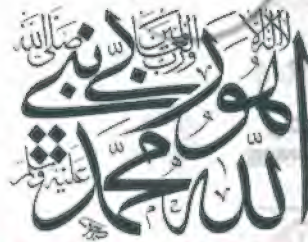 لا إله إلا ورب العالمين صلى الله
هو ربي نبي
الله محمد عليه وسلم